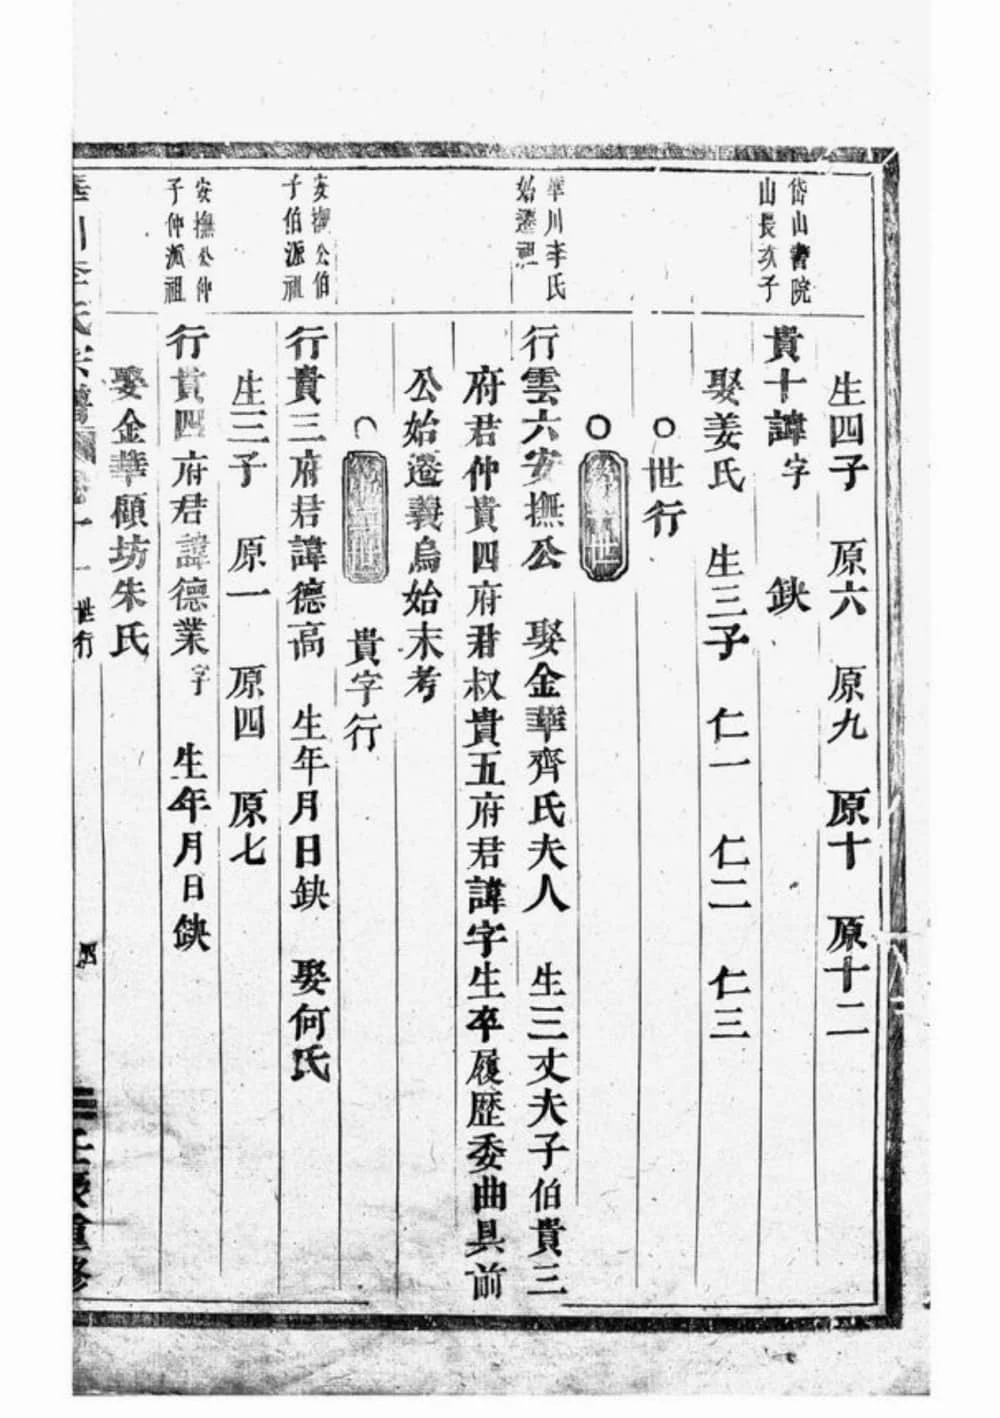 生四子　原六　原九　原十　原十二
岱山書院
山長次子
貴十諱字　　缺
娶姜氏　生三子　仁一　仁二　仁三
○世行
○
華川李氏
始遷祖
行雲六安撫公　娶金華齊氏夫人　生三丈夫子伯貴三
府君仲貴四府君叔貴五府君諱字生卒履歷委曲具前
公始遷義烏始末考
貴字行
安撫公伯
子伯源祖
行貴三府君諱德高　生年月日缺　娶何氏
生三子　原一　原四　原七
安撫公仲
子仲派祖
行貴四府君諱德業字　生年月日缺
娶金華顧坊朱氏
世行
重修